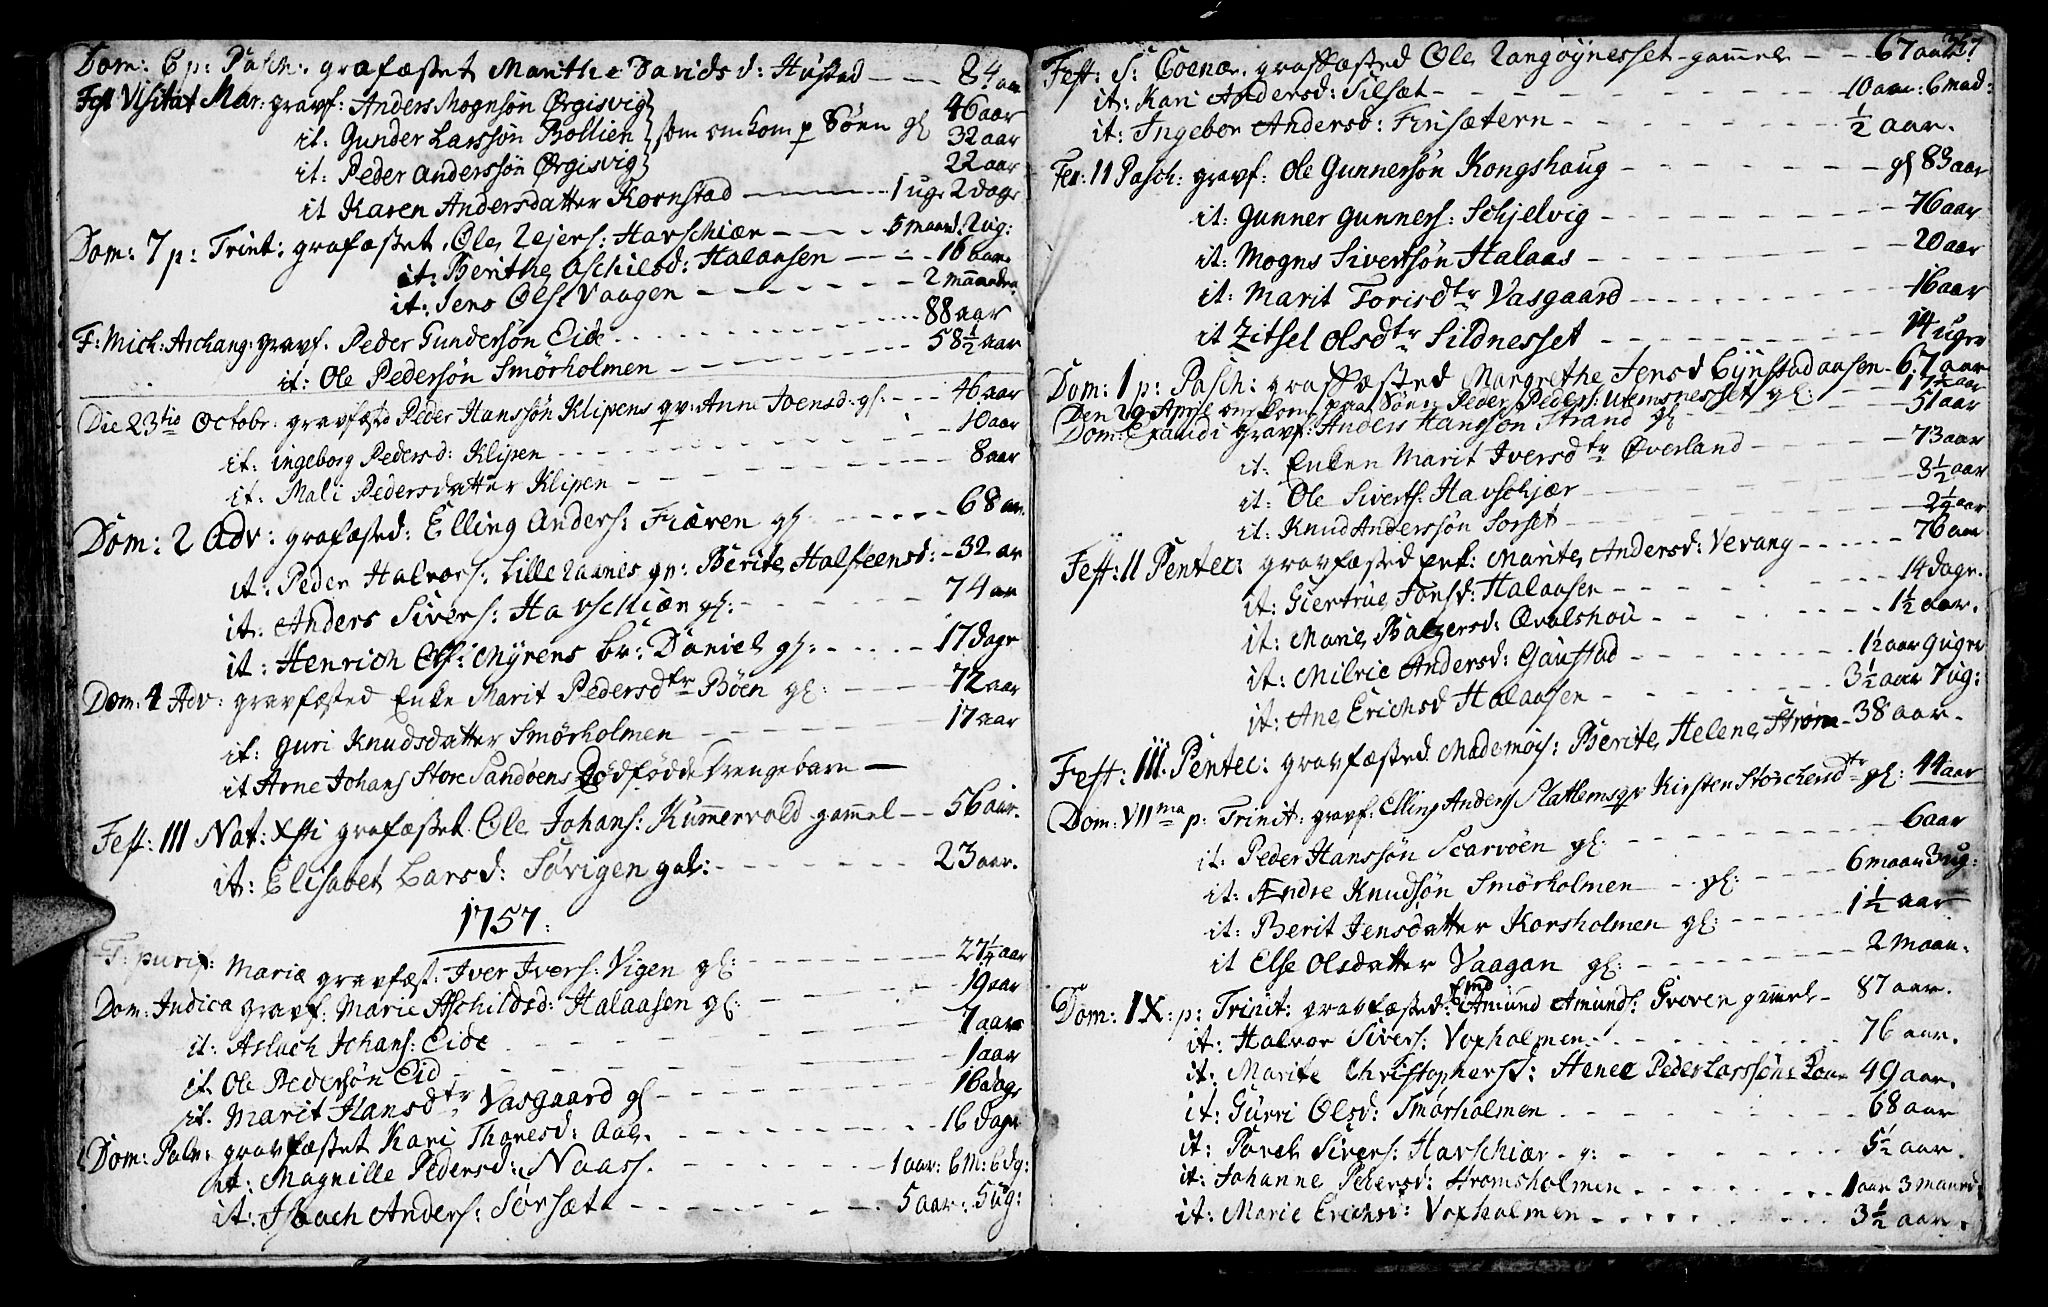 Dom: 6 p: Pasch: grafæstet Marithe Davids d: Hustad - - - 84 aar
Fest Visitat Mar: gravf: Anders Mognsøn Ørgisvig 46 aar
it. Gunder Larssøn Bollien som omkom p Søen gl 32 aar
it: Peder Anderssøn Ørgisvig 22 aar
it Karen Andersdatter Kornstad - - - 1 uge 2 dage
Dom: 7 p: Trint: grafæstet Ole Lejers: Havschiær - - - 5 maand. 2 ug:
it: Berithe Aschilsd: Halaasen - - - 16 aar.
it: Jens Olss Vaagen - - - 2 maaneder
F: Mich: Archang: gravf. Peder Gundersøn Eide - - - 88 aar
it: Ole Pedersøn Smørholmen - - - 58½ aar
Die 23tio Octobr: gravfæsted Peder Hanssøn Klipens qv: Anne Joensd: gl: - - - 46 aar
it: Ingeborg Pedersd: Klipen - - - 10 aar
it: Mali Pedersdatter Klipen - - - 8 aar
Dom: 2 Adv: grafæsted: Elling Anders: Fiæren gl - - - 68 aar.
it: Peder Halvors: Lille Raanes qv: Berite Halsteensd: - 32 ar
it: Anders Sivers: Havschiær gl: - - - 74 ar
it: Henrich Ols: Myrens br: Daniel gl: - - - 17 dage
Dom: 4 Adv: gravfæsted Enke Marit Pedersdtr Bøen gl: - - - 72 aar
it: Guri Knudsdatter Smørholmen - - - 17 aar
it Arne Johans Store Sandøens Dødfødde Drengebarn —
Fest: III Nat: Xsti grafæstet Ole Johans: Kummervold gammel - - 56 air.
it: Elisabet Larsd: Sørigen gal: - - - 23 aar.
1757:
F: purif: Mariæ gravfæst: Iver Ivers: Vigen gl: - - - 27¼ aar
Dom: Judica gravf: Marie Aschildsd: Halaasen gl: - - - 19 aar
it: Aslach Johans: Eide - - - 7 aar
it Ole Pedersøn Eid - - - 1 aar
it. Marit Hansdtr Vasgaard gl - - - 16 dage
Dom: Palm: gravfæstet Kari Tharesd: Aal. - - - 16 dage
it: Magnille Pedersd: Naass. - - - 1 aar: 6 M: 6 dg:
it: Aslach Anders: Sørsæt - - - 5 aar: 5 ug:
267
Fest: S: Coenæ. graffæsted Ole Langøynesset gammel - - 67 aar
it: Kari Andersd: Silset - - - 10 aar: 6 mad:
it: Ingebor Andersd: Firisætern - - - ½ aar.
Fer: II Pasch: gravf: Ole Gunnersøn Kongshaug - - - gl 83 aar
it: Gunner Gunners: Schjelvig - - - 76 aar
it: Mogns Sivertsøn Halaas - - - 20 aar
it: Marit Torisdtr Vasgaard - - - 16 aar
it Zitsel Olsdtr Sildnesset - - - 14 uger
Dom: 1 p: Pasch: graffæsted Margrethe Jensd Gynstadaasen - 67 aar
Den 29 April omkom paa Søen Peder Peders: Utemsnesset gl: 17½ aar
Dom: Exaudi gravf: Anders Hansøn Strand gl - - - 51 aar
it: Enken Marit Iversdtr Øverland - - - 73 aar
it: Ole Siverts: Havschjær - - - 3½ aar
it: Knud Anderssøn Sorset - - - 2½ aar
Fest: II Pentec: gravfæsted Enk: Marite Andersd: Vevang - - - 76 aar
it: Giertrue Jonsd: Halaasen - - - 14 dage.
it: Marie Balzersd: Ovalshou - - - 1½ aar.
it: Milrie Andersd: Gaustad - - - 1½ aar 9 uger
it: Ane Erichsd Halaasen - - - 3½ aar 7 ug:
Fest: III. Pentec: gravfæsted Mademois: Berite Helene Strøm - 38 aar.
Dom: VIIma p: Trinit: gravf: Elling Anders Slatlems qv Kirsten Storchersdtr gl: 44 aar
it: Peder Hanssøn Scarvøen gl. - - - 6 aar
it: Ændre Knudsøn Smørholmen - - gl: - - - 6 maan 3 ug:
it: Berit Jensdatter Korsholmen gl: - - - 1½ aar
it Else Olsdatter Vaagan gl: - - - 2 maan.
Dom: IX: p: Trinit: gravfæsted: Amund Amunds: Sveven gammel - 87 aar.
it: Halvor Sivers: Voxholmen - - - 76 aar.
it: Marite Christophersd: Henee Peder Larssøns 49 aar.
it: Gurri Olsd: Smørholmen - - - 68 aar
it: Povel Sivers: Havschiær - g: - - - 5½ aar.
it: Johanne Pedersd: Stromsholmen - - - 1 aar 3 maaned.
it: Marie Erichsd: Voxholmen - - - 3½ aar.